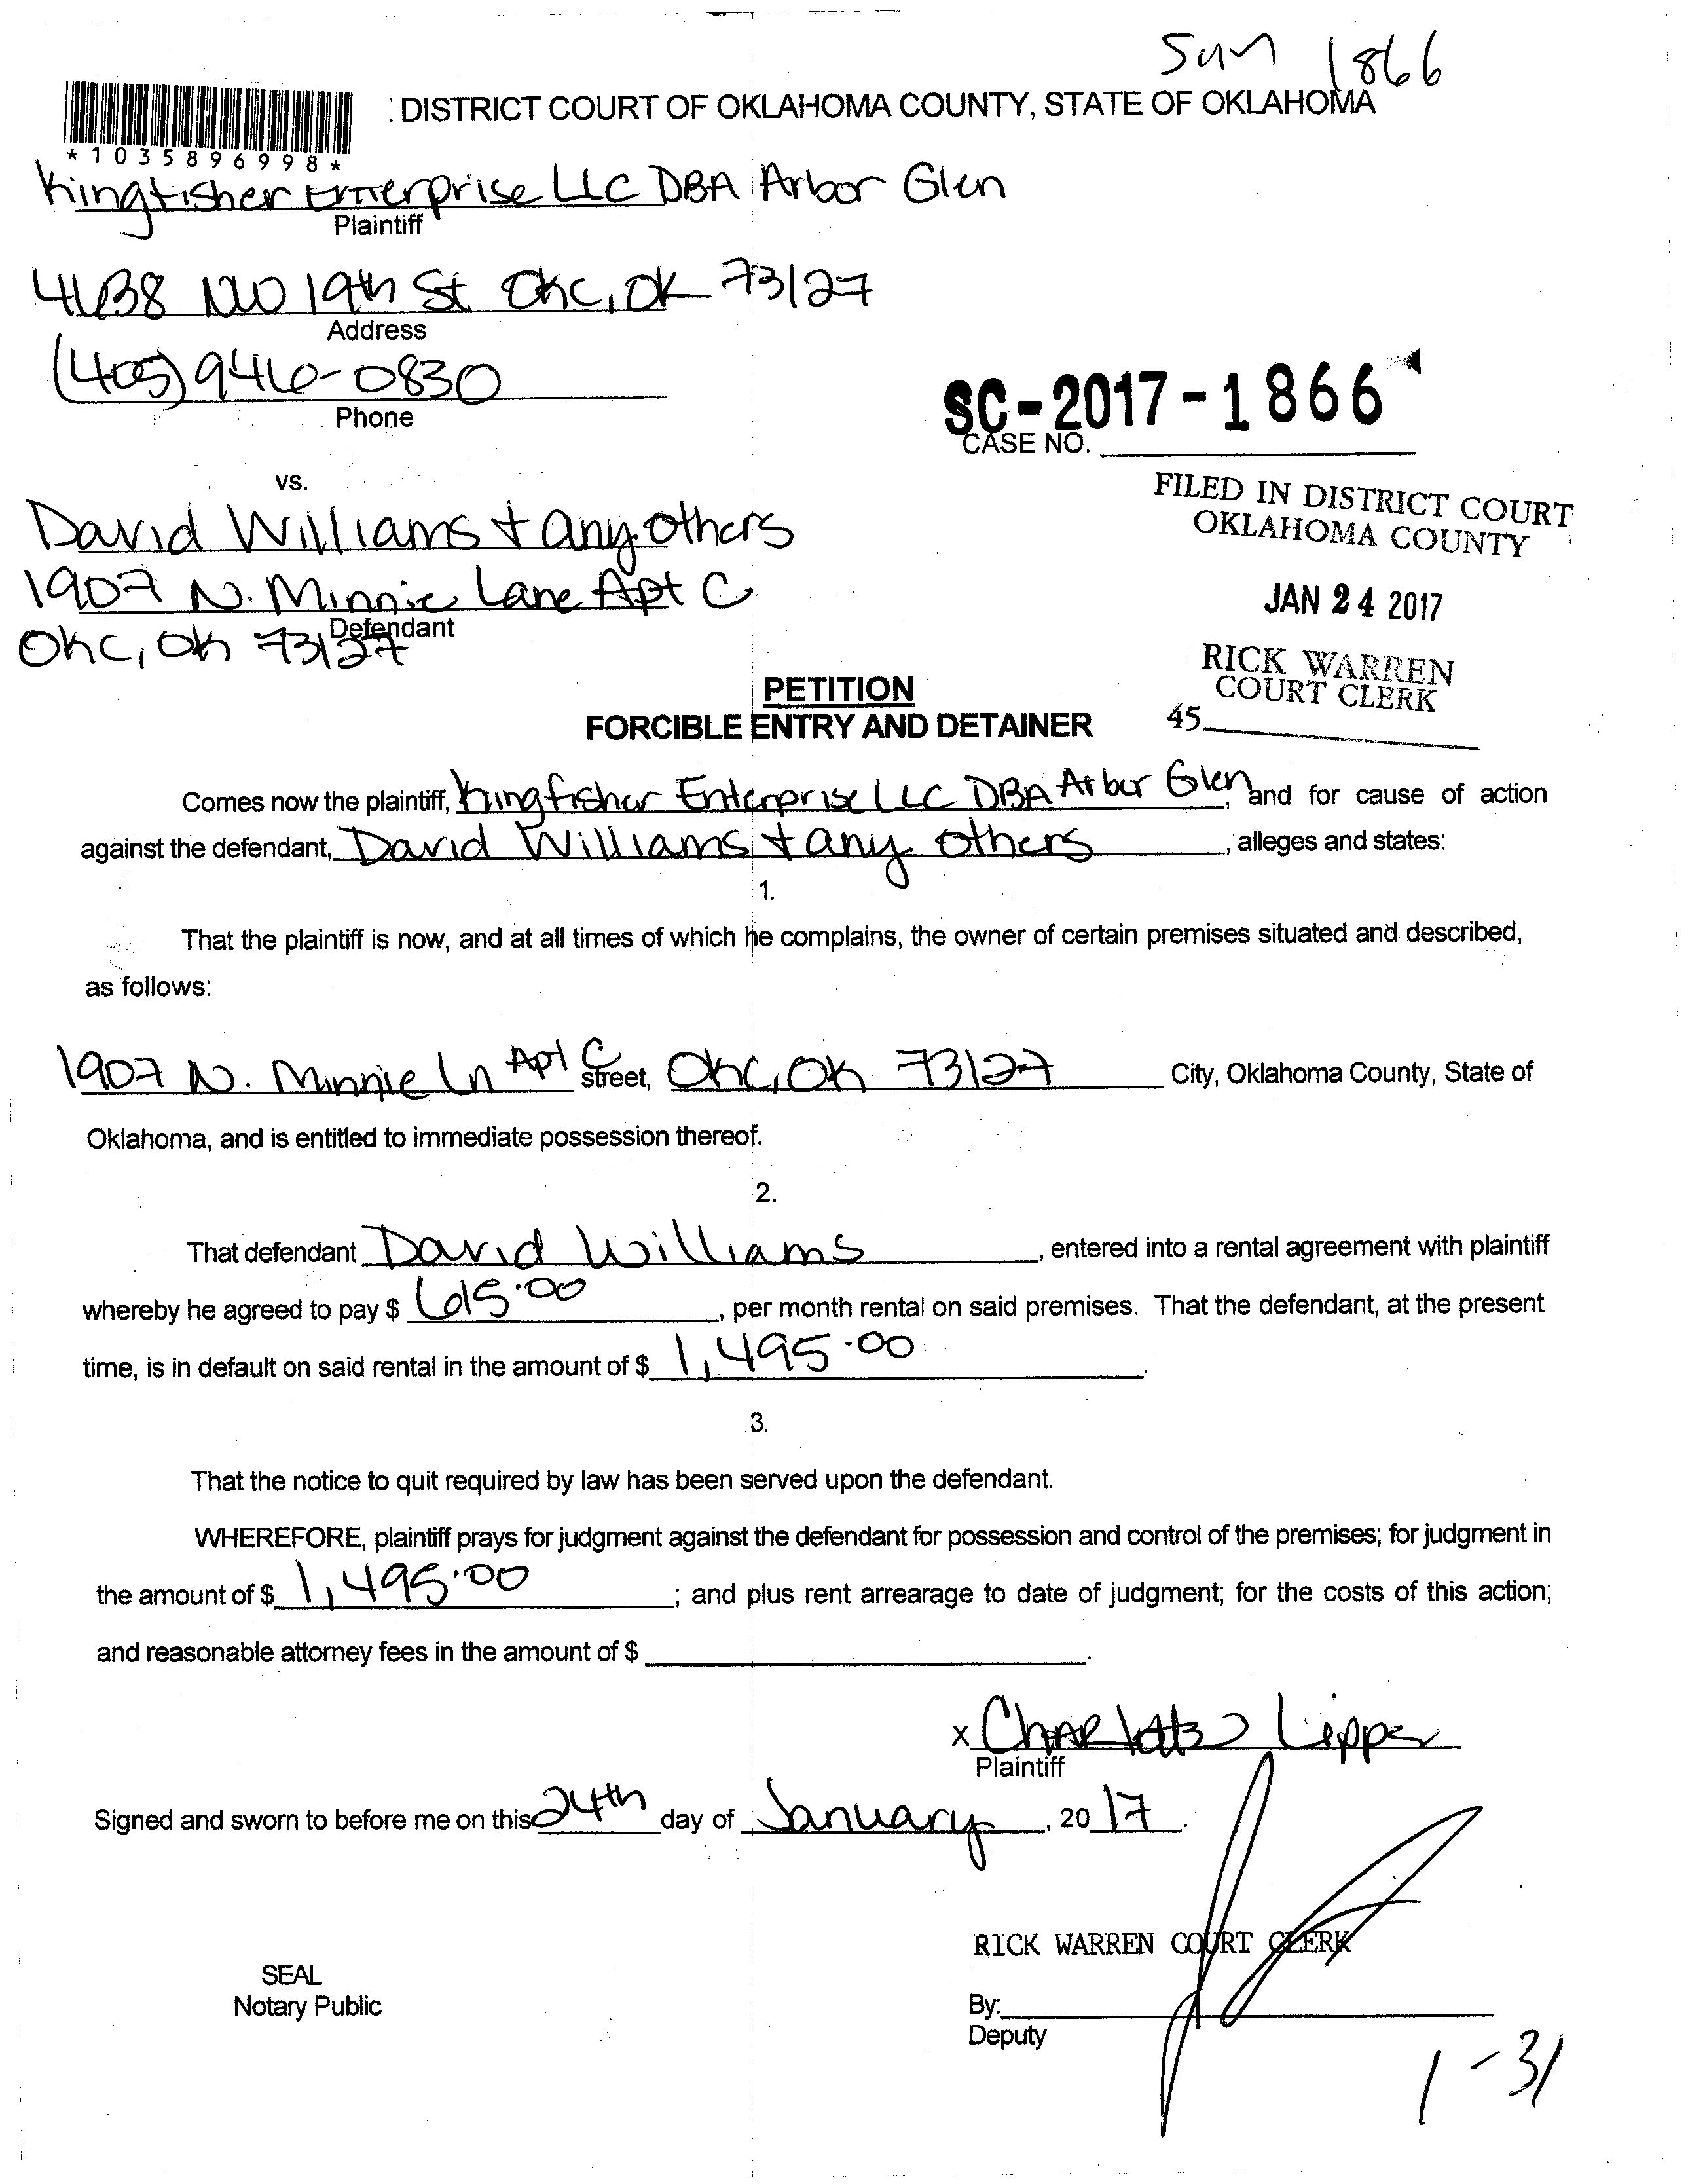 Sum 1866
: DISTRICT COURT OF OKLAHOMA COUNTY, STATE OF OKLAHOMA
*1035896998*
Kingfisher Enterprise LLC DBA Arbor Glen
Plaintiff
4638 NW 19th St Okc, Ok 73127
Address
(405) 946-0830
Phone
SC-2017-1866
CASE NO.
vs.
FILED IN DISTRICT COURT
OKLAHOMA COUNTY
David Williams + any others
1907 N. Minnie Lane Apt C
JAN 24 2017
Defendant
Okc, Ok 73127
RICK WARREN
COURT CLERK
45
PETITION
FORCIBLE ENTRY AND DETAINER
Comes now the plaintiff, Kingfisher Enterprise LLC DBA Arbor Glen, and for cause of action
against the defendant, David Williams + any others, alleges and states:
1.
That the plaintiff is now, and at all times of which he complains, the owner of certain premises situated and described,
as follows:
1907 N. Minnie Ln Apt C street, Okc, Ok 73127 City, Oklahoma County, State of
Oklahoma, and is entitled to immediate possession thereof.
2.
That defendant David Williams, entered into a rental agreement with plaintiff
whereby he agreed to pay $ 615.00, per month rental on said premises. That the defendant, at the present
time, is in default on said rental in the amount of $ 1,495.00.
3.
That the notice to quit required by law has been served upon the defendant.
WHEREFORE, plaintiff prays for judgment against the defendant for possession and control of the premises; for judgment in
the amount of $ 1,495.00; and plus rent arrearage to date of judgment; for the costs of this action;
and reasonable attorney fees in the amount of $ .
x Lipps
Plaintiff
Signed and sworn to before me on this 24th day of January, 2017.
RICK WARREN COURT CLERK
SEAL
Notary Public
By:
Deputy
1-31